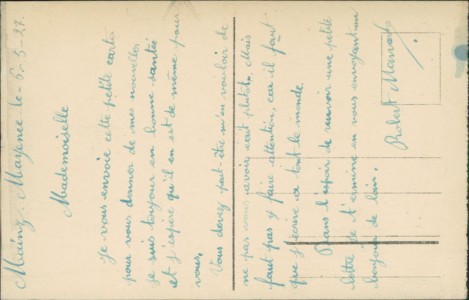 Mainz, Mayence le 6-5-27.
Mademoiselle
Je vous envoie cette petite carte
pour vous donner de mes nouvelles
je suis toujour en bonne santée
et j'espère qu'il en est de même pour
vous,
Vous devez peut-être m'en vouloir de
ne pas vous avoir écrit plutôt, Mais
faut pas y faire attention, car il faut
que j'écrive à tout le monde.
Dans l'espoir de recevoir une petite
lettre je termine en vous envoyant un
bonjour de loin.
Robert